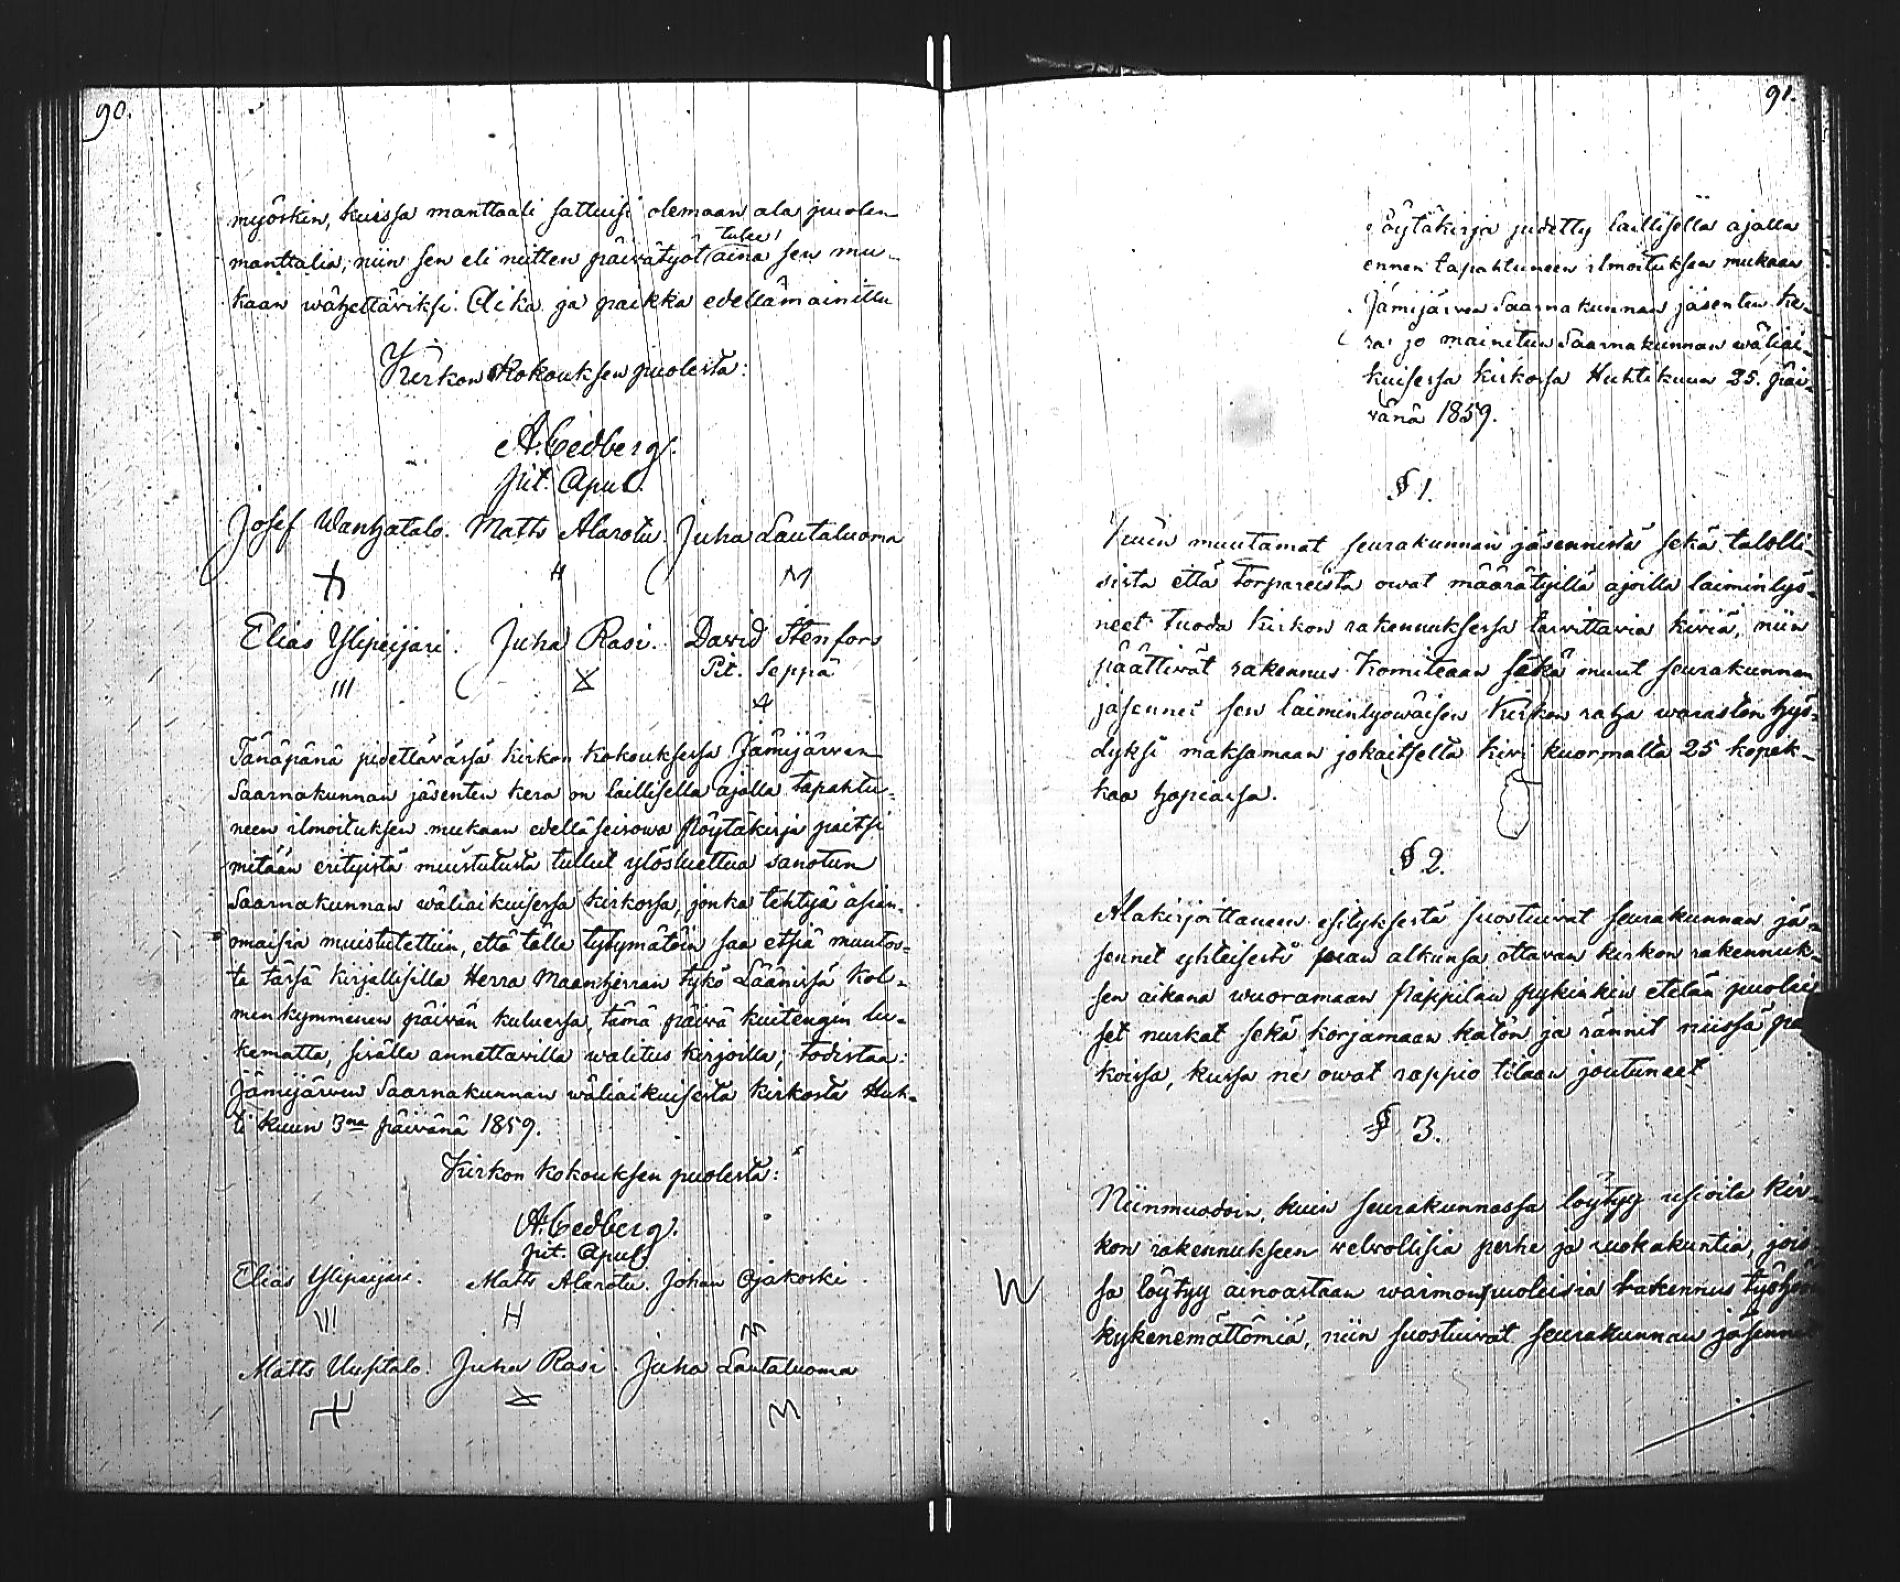 90.
myöskin, kuissa manttaali sattuisi olemaan ala puolen
tulee
manttalia, niin sen eli niitten päivätyöt aina sen mu-
kaan wähettäviksi. Aika ja paikka edellämainittu
Kirkon Kokouksen puolesta:
A. Cedberg.
Pit. Apul.
Josef Wanhatalo. Matts Alarotu. Juha Lautaluoma
Elias Ylipeijari. Juha Rasi. David Stenfors
Pit. Seppä
III
Tänäpänä pidettävässä kirkon kokouksessa Jämijärven
Saarnakunnan jäsenten kera on laillisella ajalla tapahtu-
neen ilmoituksen mukaan edelläseisowa Pöytäkirja paitsi
mitään erityistä muistutusta tullut ylösluettua sanotun
Saarnakunnan wäliaikuisessa kirkossa, jonka tehtyä asian-
omaisia muistutettiin, että tälle tytymätöin saa etsiä muutos-
ta tässä kirjallisilla Herra Maanherran tykö Läänissä kol-
menkymmenen päivän kuluessa, tämä päivä kuitengin lu-
kematta, sisälle annettavilla walitus kirjoilla; todistaa:
Jämijärven Saarnakunnan wäliaikuisesta kirkosta Huh-
ti kuun 3na päivänä 1859.
Kirkon kokouksen puolesta:
A. Cedberg.
pit. Apul.
Elias Ylipeijari. Matts Alarotu. Johan Ojakoski.
Matts Uusitalo. Juha Rasi. Juha Lautaluoma
91.
Pöytäkirja pidetty laillisella ajalla
ennen tapahtuneen ilmoituksen mukaan
Jämijärven Saarnakunnan jäsenten ke-
ra jo mainitun Saarnakunnan wäliai-
kuisessa kirkossa Huhtikuun 25. päi-
vänä 1859.
§ 1.
Kuin muutamat seurakunnan jäsennistä sekä talolli-
sista että Torpareista owat määrätyillä ajoilla laiminlyö-
neet tuoda Kirkon rakennuksessa tarvittavia kiviä, niin
päättivät rakennus Komiteaan sekä muut seurakunnan
jäsennet sen laiminlyöwäisen Kirkon raha warasten hyö-
dyksi maksamaan jokaitselta kivi kuormalta 25 kopek-
kaa hopeassa.
§ 2.
Alakirjoittaneen esityksestä suostuivat seurakunnan jä-
sennet yhteisesti alkunsa ottavan kirkon rakennuk-
sen aikana wuoramaan Pappilan etelän puolei
set nurkat sekä korjamaan katon ja rännit niissä pa
koissa, kussa ne owat rappio tilaan joutuneet
§ 3.
Niinmuodoin, kuin seurakunnassa löytyy usioita kir-
kon rakennukseen welwollisia perhe ja ruokakuntia, jois-
sa löytyy ainoastaan waimonpuoleisia rakennus työhön
kykenemättömiä, niin suostuivat seurakunnan jäsennet